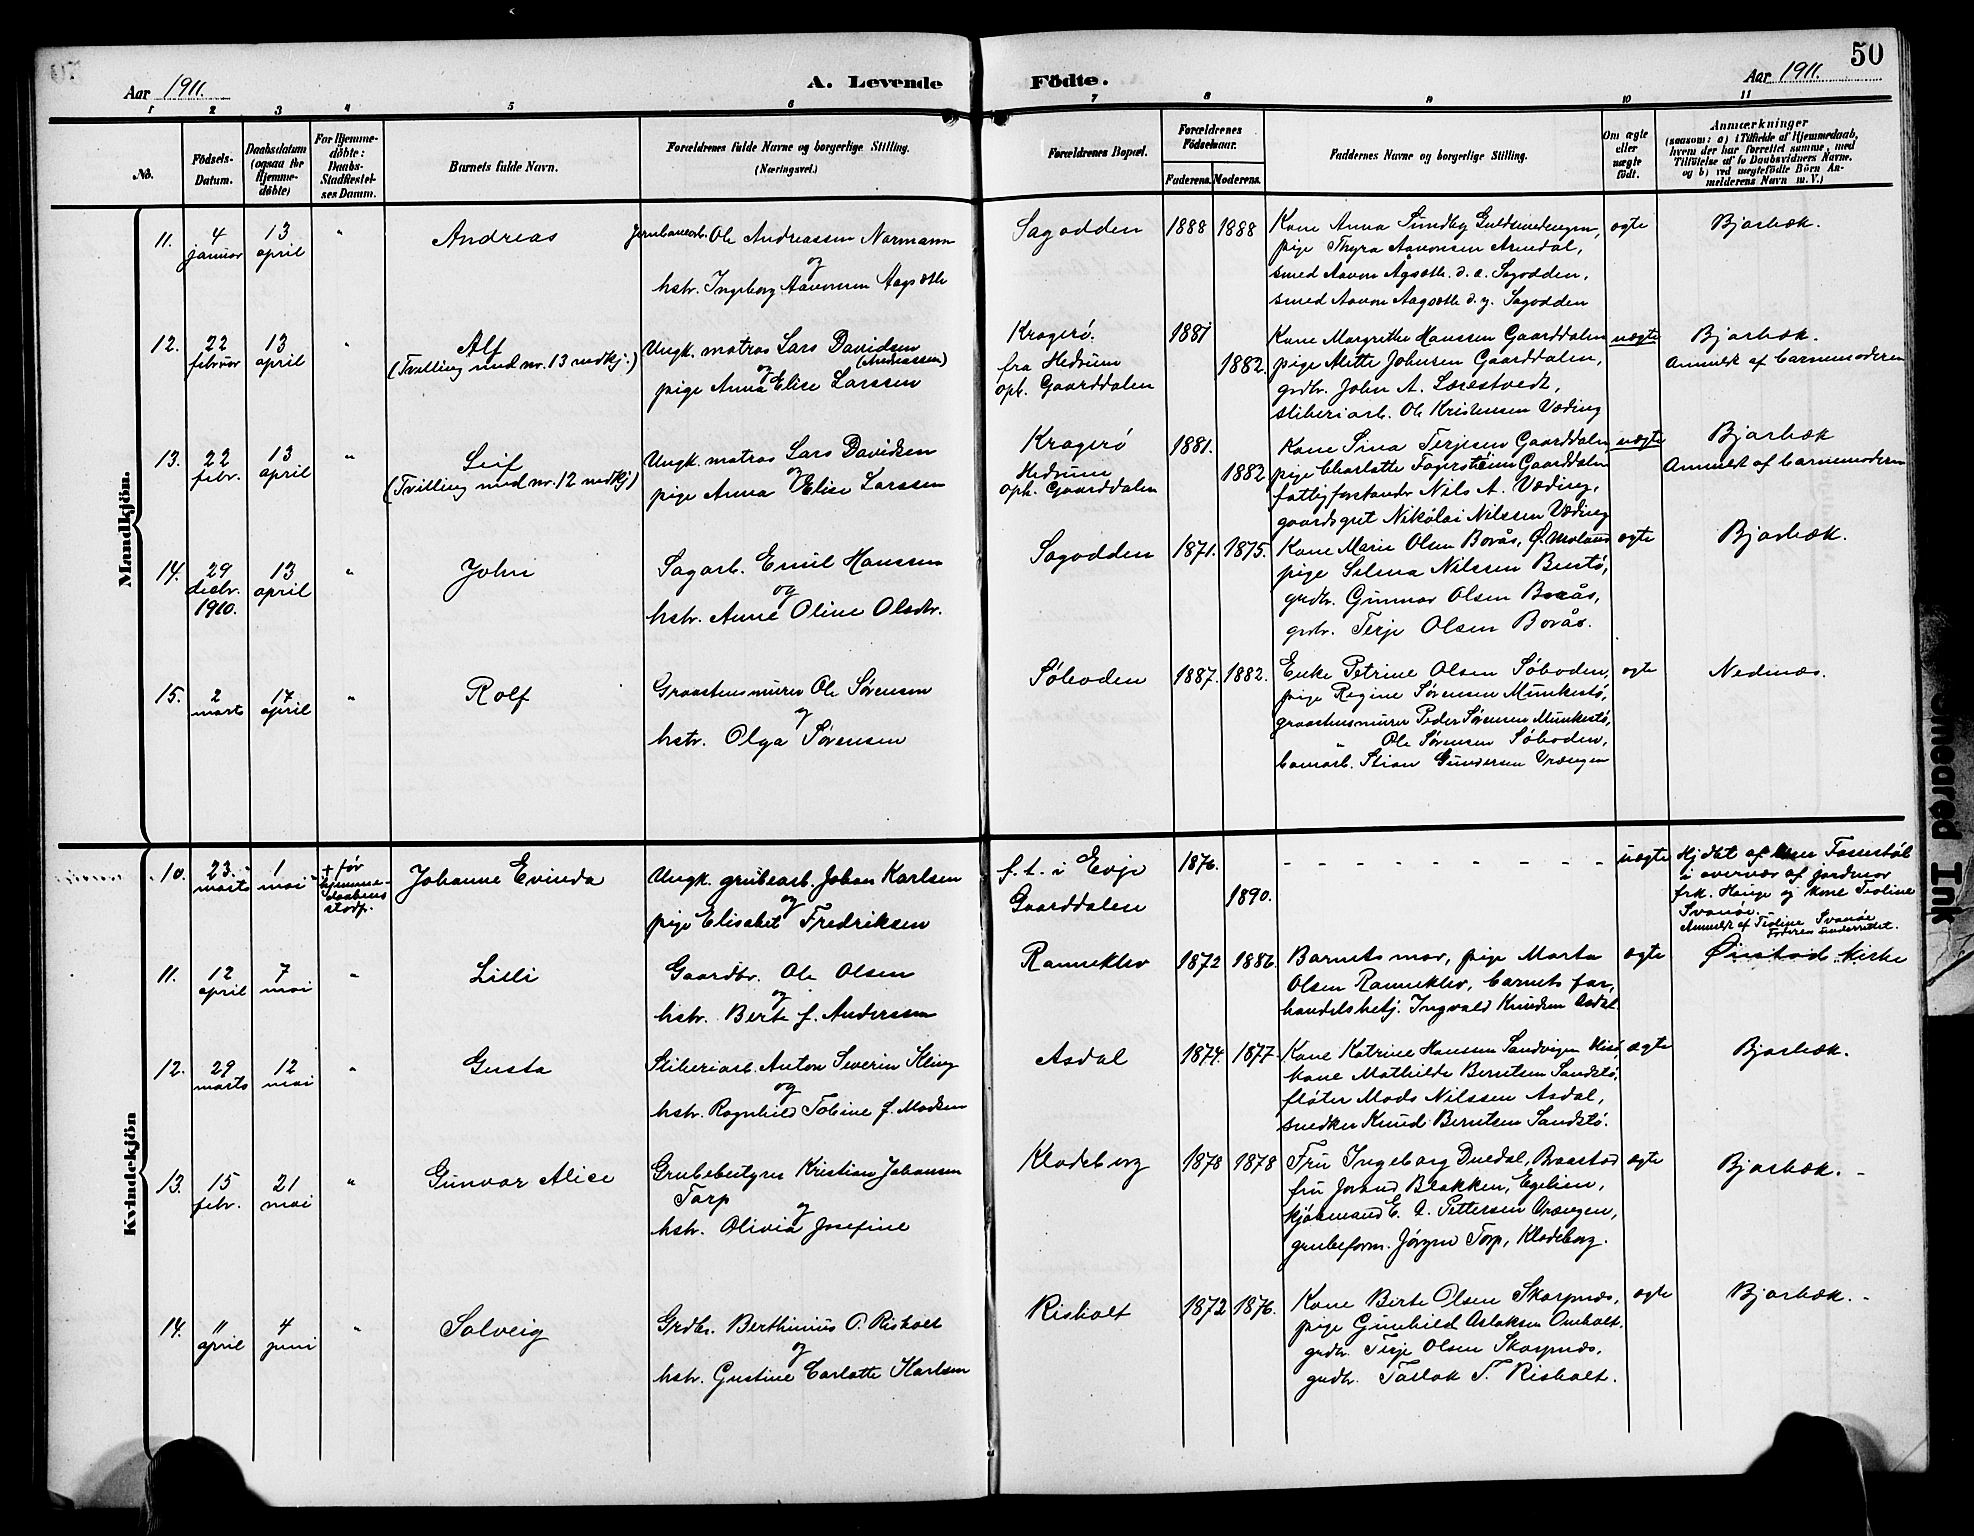 50
Aar 1911.
A. Levende
Födte.
Aar 1911.
1 2 3 4 5 6 7 8 9 10 11
No.
Födsels-
Datum.
Daabsdatum
(ogsaa for
Hjemme-
døbte)
For Hjemme-
døbte:
Daabs-
Stadfæstel-
ses Datum.
Barnets fulde Navn.
Forældrenes fulde Navne og borgerlige Stilling.
(Næringsvei.)
Forældrenes Bopæl.
Forældrenes
Födselsaar.
Faderens. Moderens.
Faddernes Navne og borgerlige Stilling.
Om ægte
eller
uægte
födt.
Anmærkninger
(saasom: a) i Tilfælde af Hjemmedaab,
hvem der har forrettet samme, med
Tilföielse af to Daabsvidners Navne.
og b) ved uægtefödte Börn An-
melderens Navn m. V.)
Mandkjön.
11.
4
januar
13
april
"
Andreas
Jernbanearb. Ole Andreassen Normann
og
hstr. Ingeborg Aavonsen Aagsæth
Sagodden
1888 1888
Kone Anna Sundby Guldsmedengen,
pige Thyra Aavonsen Arendal,
smed Aavon Agsæth d. æ. Sagodden,
smed Aavon Aagsæth d. y. Sagodden
ægte
Bjorbæk.
12.
22
februar
13
april
"
Alf
(Tvilling med nr. 13 mdkj.)
Ungk. matros Lars Davidsen
(Andreassen)
og
pige Anna Elise Larssen
Kragerø.
fra Hedrum
oph. Gaarddalen
1881
1882.
Kone Margrethe Hanssen Gaarddalen
pige Alette Johnsen Gaarddalen,
grdbr. John A. Lærestvedt,
sliberiarb. Ole Kristensen Væding
uægte
Bjorbæk.
Anmeldt af barnemoderen
13.
22
febr.
13
april
"
Leif
(Tvilling med nr. 12 mdkj)
Ungk. matros Lars Davidsen
og
pige Anna Elise Larssen
Kragerø
Hedrum
oph. Gaarddalen
1881.
1882
Kone Sina Terjesen Gaarddalen,
pige Charlotte Fagerstrøm Gaarddalen
fattigforstander Nils A. Væding,
gaardsgut Nikolai Nilssen Væding
uægte
Bjorbæk
Anmeldt af barnemoderen
14.
29
decbr.
1910.
13
april
"
John
Sagarb. Emil Hanssen
og
hstr. Anne Oline Olsdtr.
Sagodden
1871. 1875.
Kone Marie Olsen Borås, Ø. Moland
pige Selma Nilssen Bustø,
grdbr. Gunnar Olsen Borås,
grdbr. Terje Olsen Borås.
ægte
Bjorbæk.
15.
2
marts
17
april
"
Rolf
Graastensmurer Ole Sørensen
og
hstr. Olga Sørensen
Søboden
1887. 1882.
Enke Petrine Olsen Søboden,
pige Regine Sørensen Munkestø,
graastensmurer Peder Sørensen Munkestø,
" Ole Sørensen Søboden,
banearb. Stian Gundersen Vrængen
ægte
Nedenæs.
Kvindekjön
10.
23.
marts
1
mai
† før
hjemme-
daabens
stadf.
Johanne Evinda
Ungk. grubearb. Johan Karlsen
og
pige Elisabet Fredriksen
f. t. i Evje
Gaarddalen
1876.
1890.
- - - - - - - - - -
uægte
Hjdbt af Fossestøl
i overvær af jordmor
frk. Hauge og kone Teoline
Svanøe.
Anmeldt af Teoline Svanøe
Faderen underrettet.
11.
12
april
7
mai
"
Lilli
Gaardbr. Ole Olsen
og
hstr. Berte f. Anderssen
Ranneklev
1872 1886.
Barnets mor, pige Marta
Olsen Ranneklev, barnets far,
handelsbetj. Ingvald Knudsen Asdal
ægte
Øiestad Kirke
12.
29
marts
12
mai
"
Gusta
Sliberiarb. Anton Severin Kling
og
hstr. Ragnhild Tobine f. Madsen
Asdal
1874. 1877.
Kone Katrine Hanssen Sandvigen Hisø,
kone Mathilde Berntsen Sandstø,
fløter Mads Nilssen Asdal,
snedker Knud Berntsen Sandstø.
ægte
Bjorbæk.
13.
15
febr.
21
mai
"
Gunvor Alice
Grubebestyrer Kristian Johansen
Torp
og
hstr. Olivia Josefine
Klodeborg
1878 1878
Fru Ingeborg Duedal, Braastad
fru Jorand Blakken, Egelien,
kjøbmand E. A. Pettersen Vrængen,
grubeform. Jörgen Torp, Klodeborg.
ægte
Bjorbæk. -
14.
11
april
4
juni
"
Solveig
Grdbr. Berthinius O. Risholt
og
hstr. Gustine Carlotte Karlsen
Risholt
1872 1876.
Kone Birte Olsen Skarpnes,
pige Gunhild Aslaksen Omholt.
grdbr. Terje Olsen Skarpnes,
grdbr. Taslak T. Risholt.
ægte
Bjorbæk. -
Smeared Ink